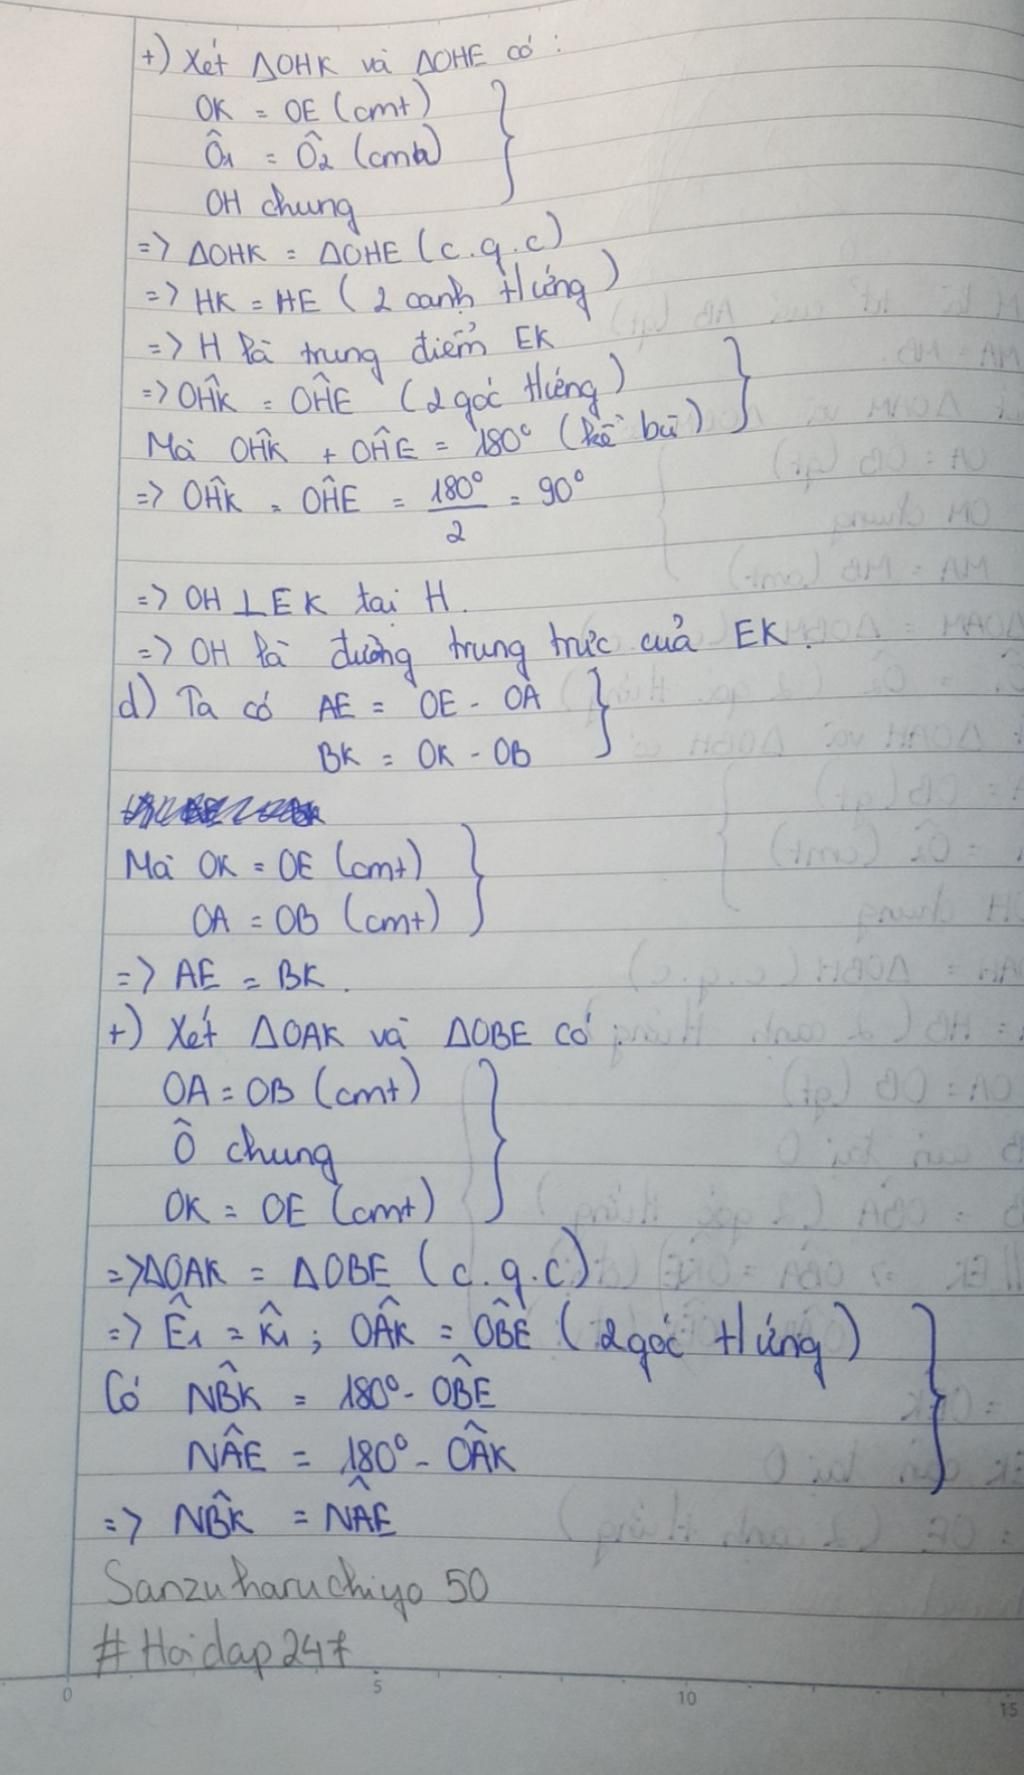 +) Xét ΔOHK và ΔOHE có :
OK = OE (cmt)
Ô1 = Ô2 (cmt)
OH chung
=> ΔOHK = ΔOHE (c.g.c)
=> HK = HE (2 cạnh tứng)
=> H là trung điểm EK
=> OĤK = OĤE (2 góc tứng)
Mà OĤK + OĤE = 180° (kề bù)
=> OĤK = OĤE = 180°/2 = 90°
=> OH ⊥ EK tại H.
=> OH là đường trung trực của EK.
d) Ta có AE = OE - OA
BK = OK - OB
Mà OK = OE (cmt)
OA = OB (cmt)
=> AE = BK.
+) Xét ΔOAK và ΔOBE có
OA = OB (cmt)
Ô chung
OK = OE (cmt)
=> ΔOAK = ΔOBE (c.g.c)
=> Ê1 = K̂1 ; OÂK = OB̂E (2 góc tứng)
Có NB̂K = 180° - OB̂E
NÂE = 180° - OÂK
=> NB̂K = NÂE
Sanzuharuchiyo 50
#Hoidap247
0 5 10 15